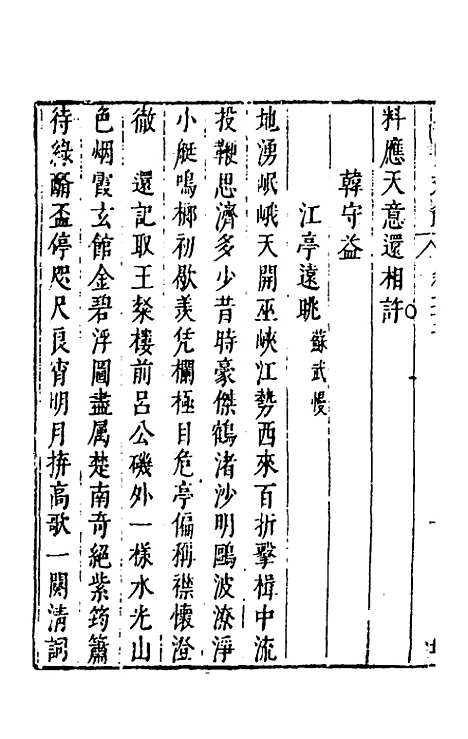 料應天意還相許
韓守益
江亭遠眺 蘇武慢
地湧岷峨天開巫峽江勢西來百折擊楫中流
投鞭思濟多少昔時豪傑鶴渚沙明鷗波潦淨
小艇鳴榔初歇羙凭欄極目危亭偏稱襟懷澄
徹 還記取王粲樓前呂公磯外一樣水光山
色烟霞玄館金碧浮圖盡属楚南奇絕紫筠簫
待綠醑盃停咫尺良宵明月拚高歌一闋清詞